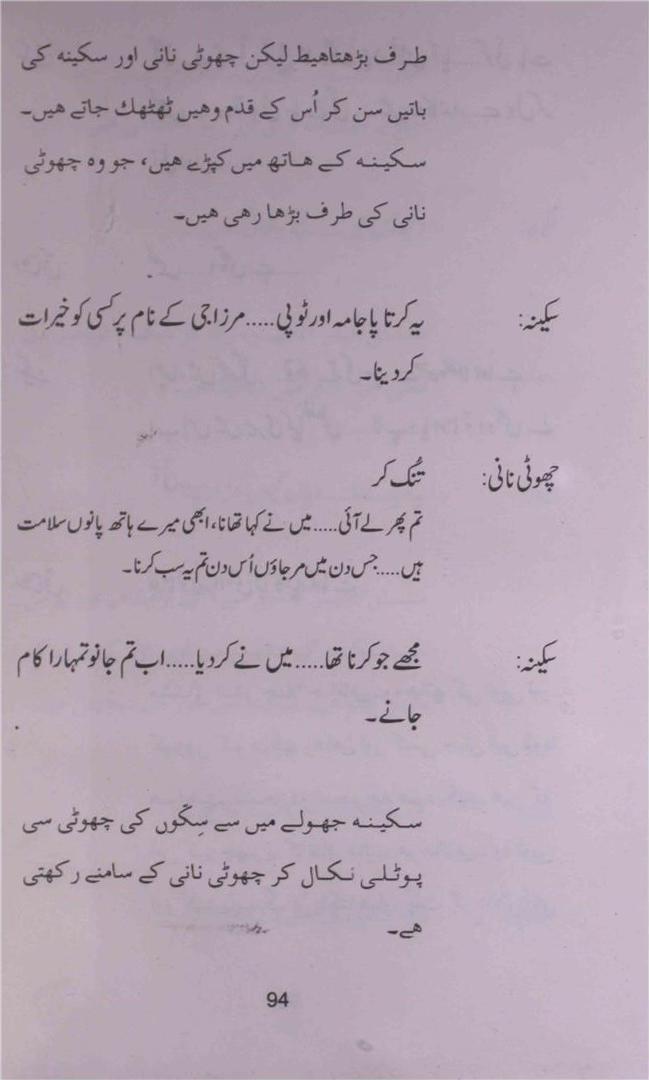 طرف بڑھتاھیط لیکن چھوٹی نانی اور سکینہ کی
باتیں سن کر اُس کے قدم وھیں ٹھٹھك جاتے ھیں۔
سکینہ کے ھاتھ میں کپڑے ھیں، جو وہ چھوٹی
نانی کی طرف بڑھا رھی ھیں۔
سکینہ: یہ کرتا پاجامہ اور ٹوپی..... مرزا جی کے نام پر کسی کو خیرات
کر دینا۔
چھوٹی نانی: تُنک کر
تم پھر لے آئی..... میں نے کہا تھا نا، ابھی میرے ہاتھ پانوں سلامت
ہیں..... جس دن میں مر جاؤں اُس دن تم یہ سب کرنا۔
سکینہ: مجھے جو کرنا تھا..... میں نے کر دیا..... اب تم جانو تمہارا کام
جانے۔
سکینہ جھولے میں سے سِکّوں کی چھوٹی سی
پوٹلی نکال کر چھوٹی نانی کے سامنے رکھتی
ھے۔
94